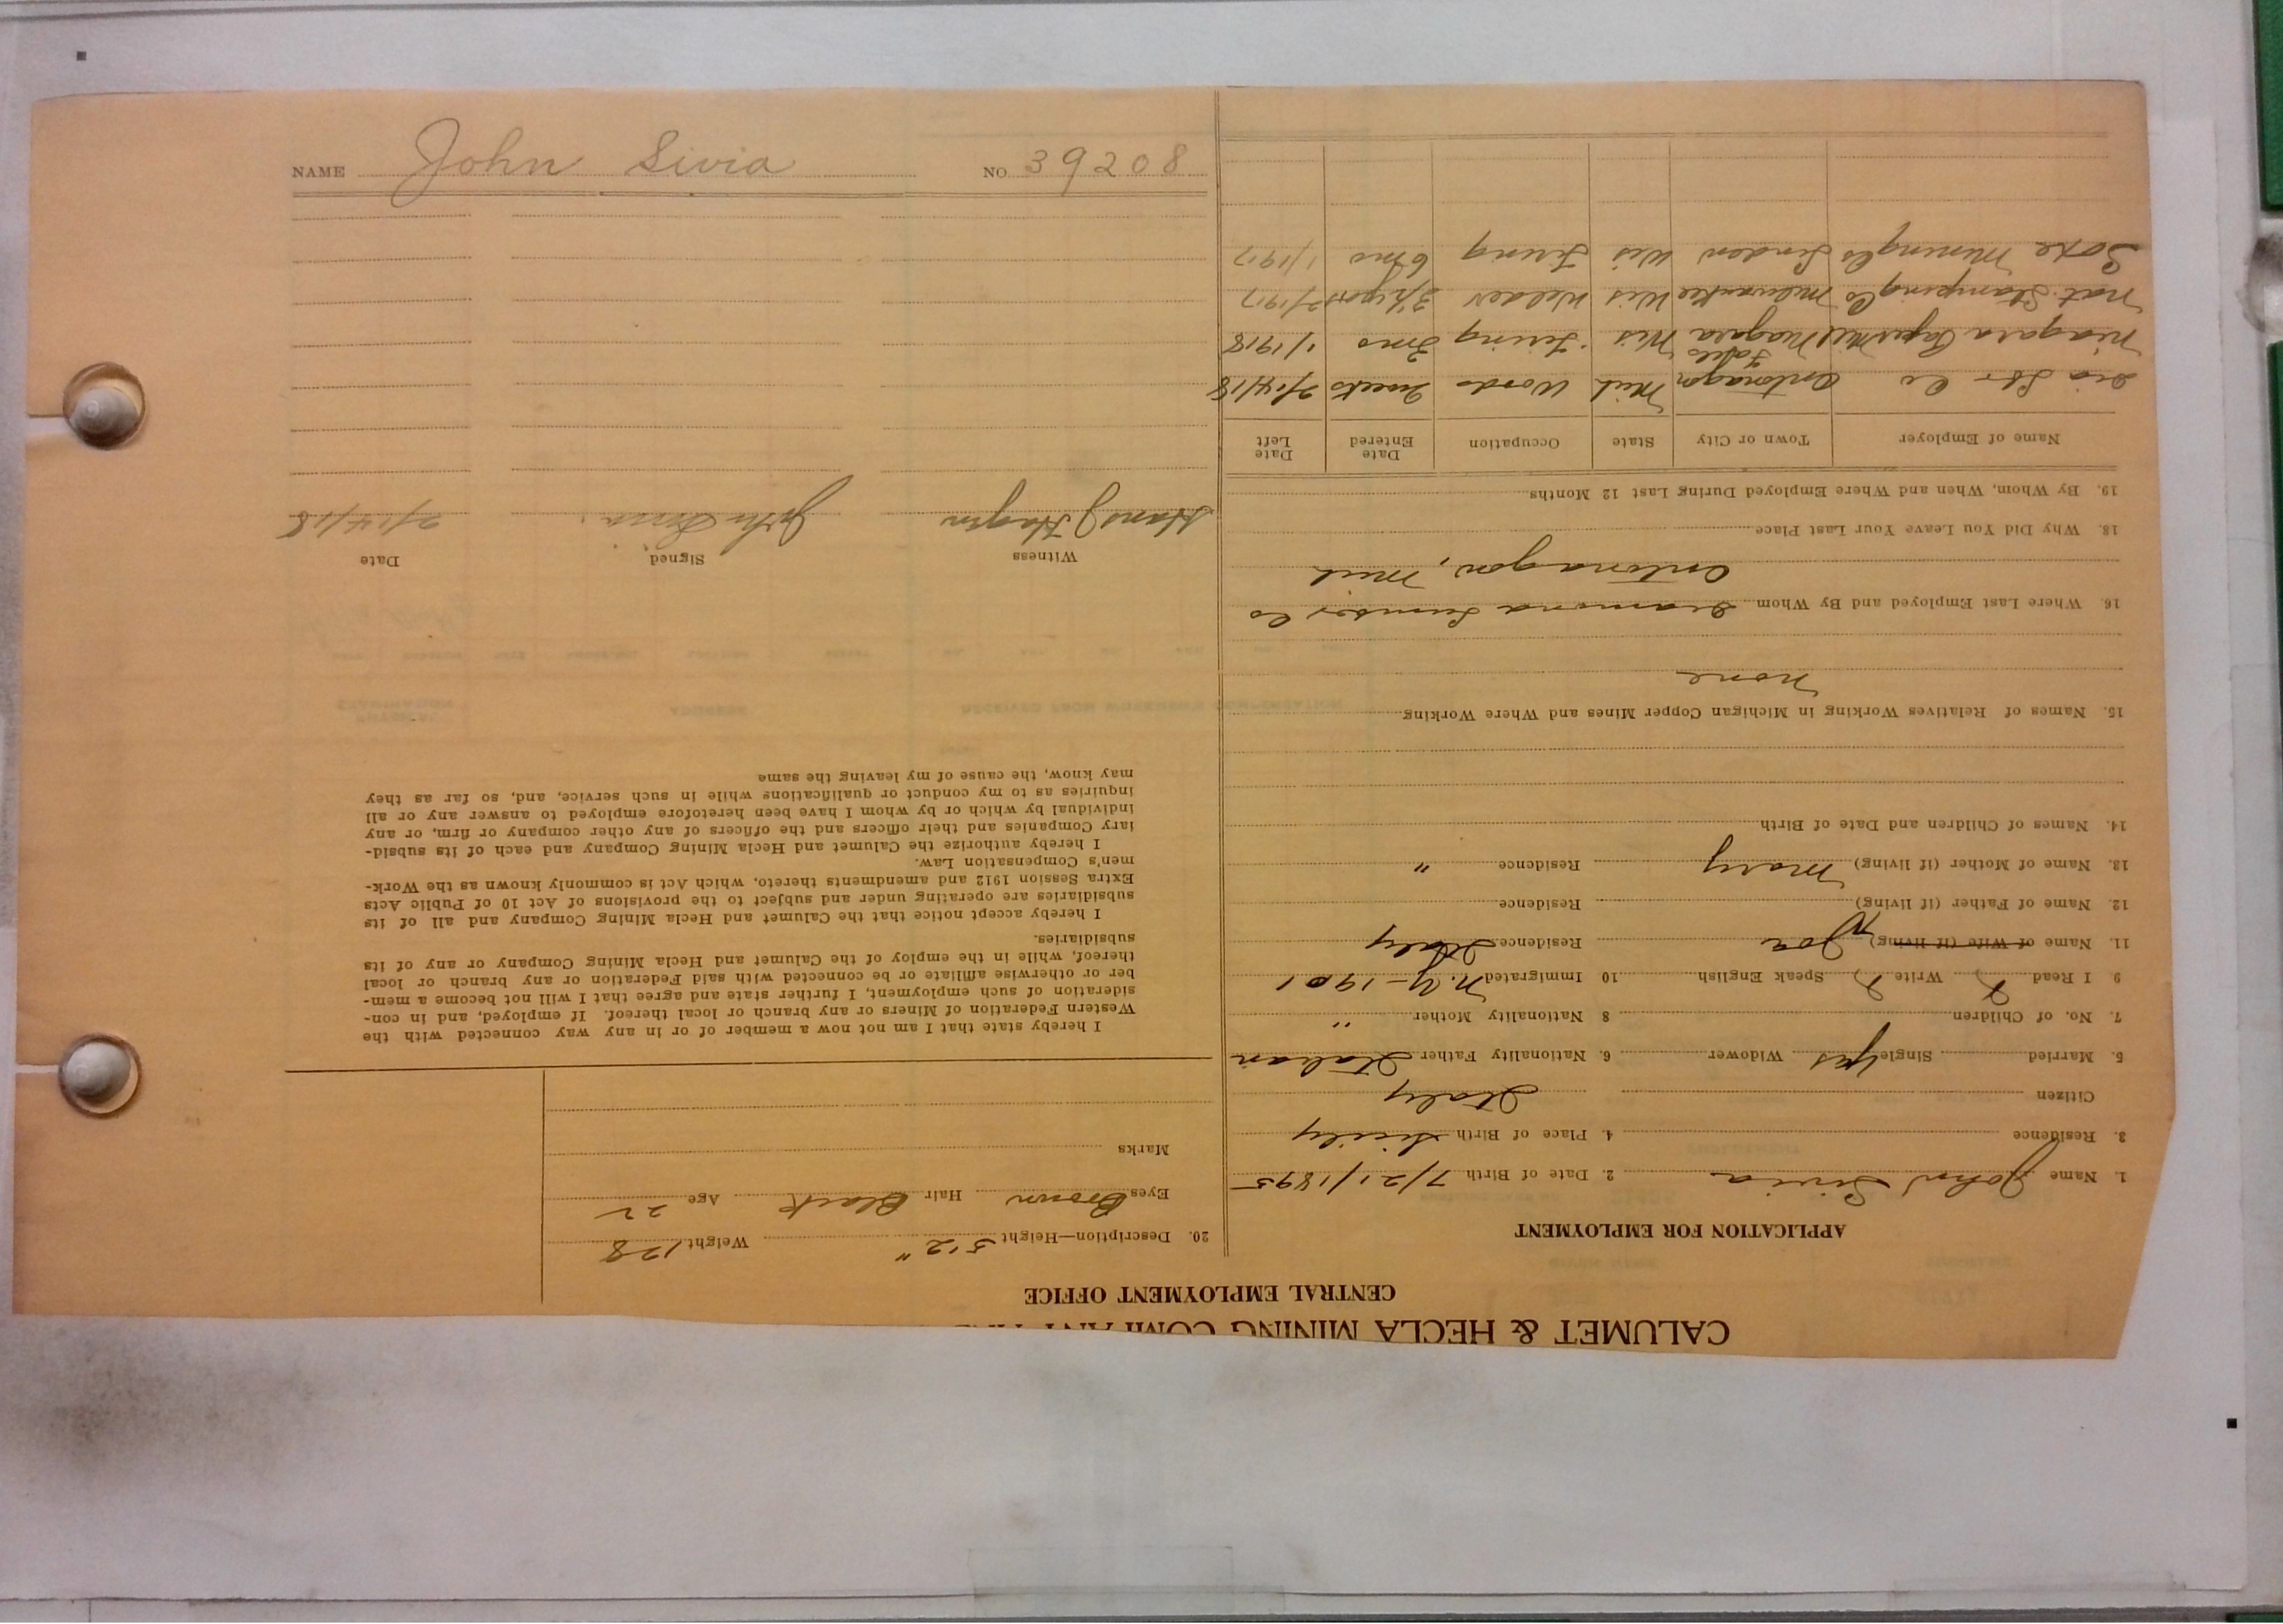 NAME John Sivia NO. 39208
CALUMET & HECLA MINING COMPANY
CENTRAL EMPLOYMENT OFFICE
APPLICATION FOR EMPLOYMENT
1. Name John Sivia 2. Date of Birth 7/21/1895
3. Residence 4. Place of Birth Sicily
Citizen Italy
5. Married Single yes Widower 6. Nationality Father Italian
7. No. of Children 8 Nationality Mother "
9 I Read Write Speak English 10 Immigrated N.Y - 1901
11. Name of Wife (if living) Residence Italy
12. Name of Father (if living) Residence
13. Name of Mother (if living) Mary Residence "
14. Names of Children and Date of Birth
15. Names of Relatives Working in Michigan Copper Mines and Where Working
None
16. Where Last Employed and By Whom Diamond Lumber Co
Ontonagon, Mich
18. Why Did You Leave Your Last Place
19. By Whom, When and Where Employed During Last 12 Months
Name of Employer Town or City State Occupation Date Entered Date Left
Dia Lbr Co Ontonagon Mich Woods 2 weeks 2/14/18
Niagara Paper Mill Niagara Falls Wis Firing 3 mo 1/1918
Nat. Stamping Co Milwaukee Wis Welder 3 1/2 years 2/1917
Mining Co Linden Wis Firing 6 mo 1/1917
20. Description—Height 5'2" Weight 128
Eyes Brown Hair Black Age 22
Marks
I hereby state that I am not now a member of or in any way connected with the
Western Federation of Miners or any branch or local thereof. If employed, and in con-
sideration of such employment, I further state and agree that I will not become a mem-
ber or otherwise affiliate or be connected with said Federation or any branch or local
thereof, while in the employ of the Calumet and Hecla Mining Company or any of its
subsidiaries.
I hereby accept notice that the Calumet and Hecla Mining Company and all of its
subsidiaries are operating under and subject to the provisions of Act 10 of Public Acts
Extra Session 1912 and amendments thereto, which Act is commonly known as the Work-
men's Compensation Law.
I hereby authorize the Calumet and Hecla Mining Company and each of its subsid-
iary Companies and their officers and the officers of any other company or firm, or any
individual by which or by whom I have been heretofore employed to answer any or all
inquiries as to my conduct or qualifications while in such service, and, so far as they
may know, the cause of my leaving the same
Witness Signed Date
Hans J Hagen John Sivia 2/14/18